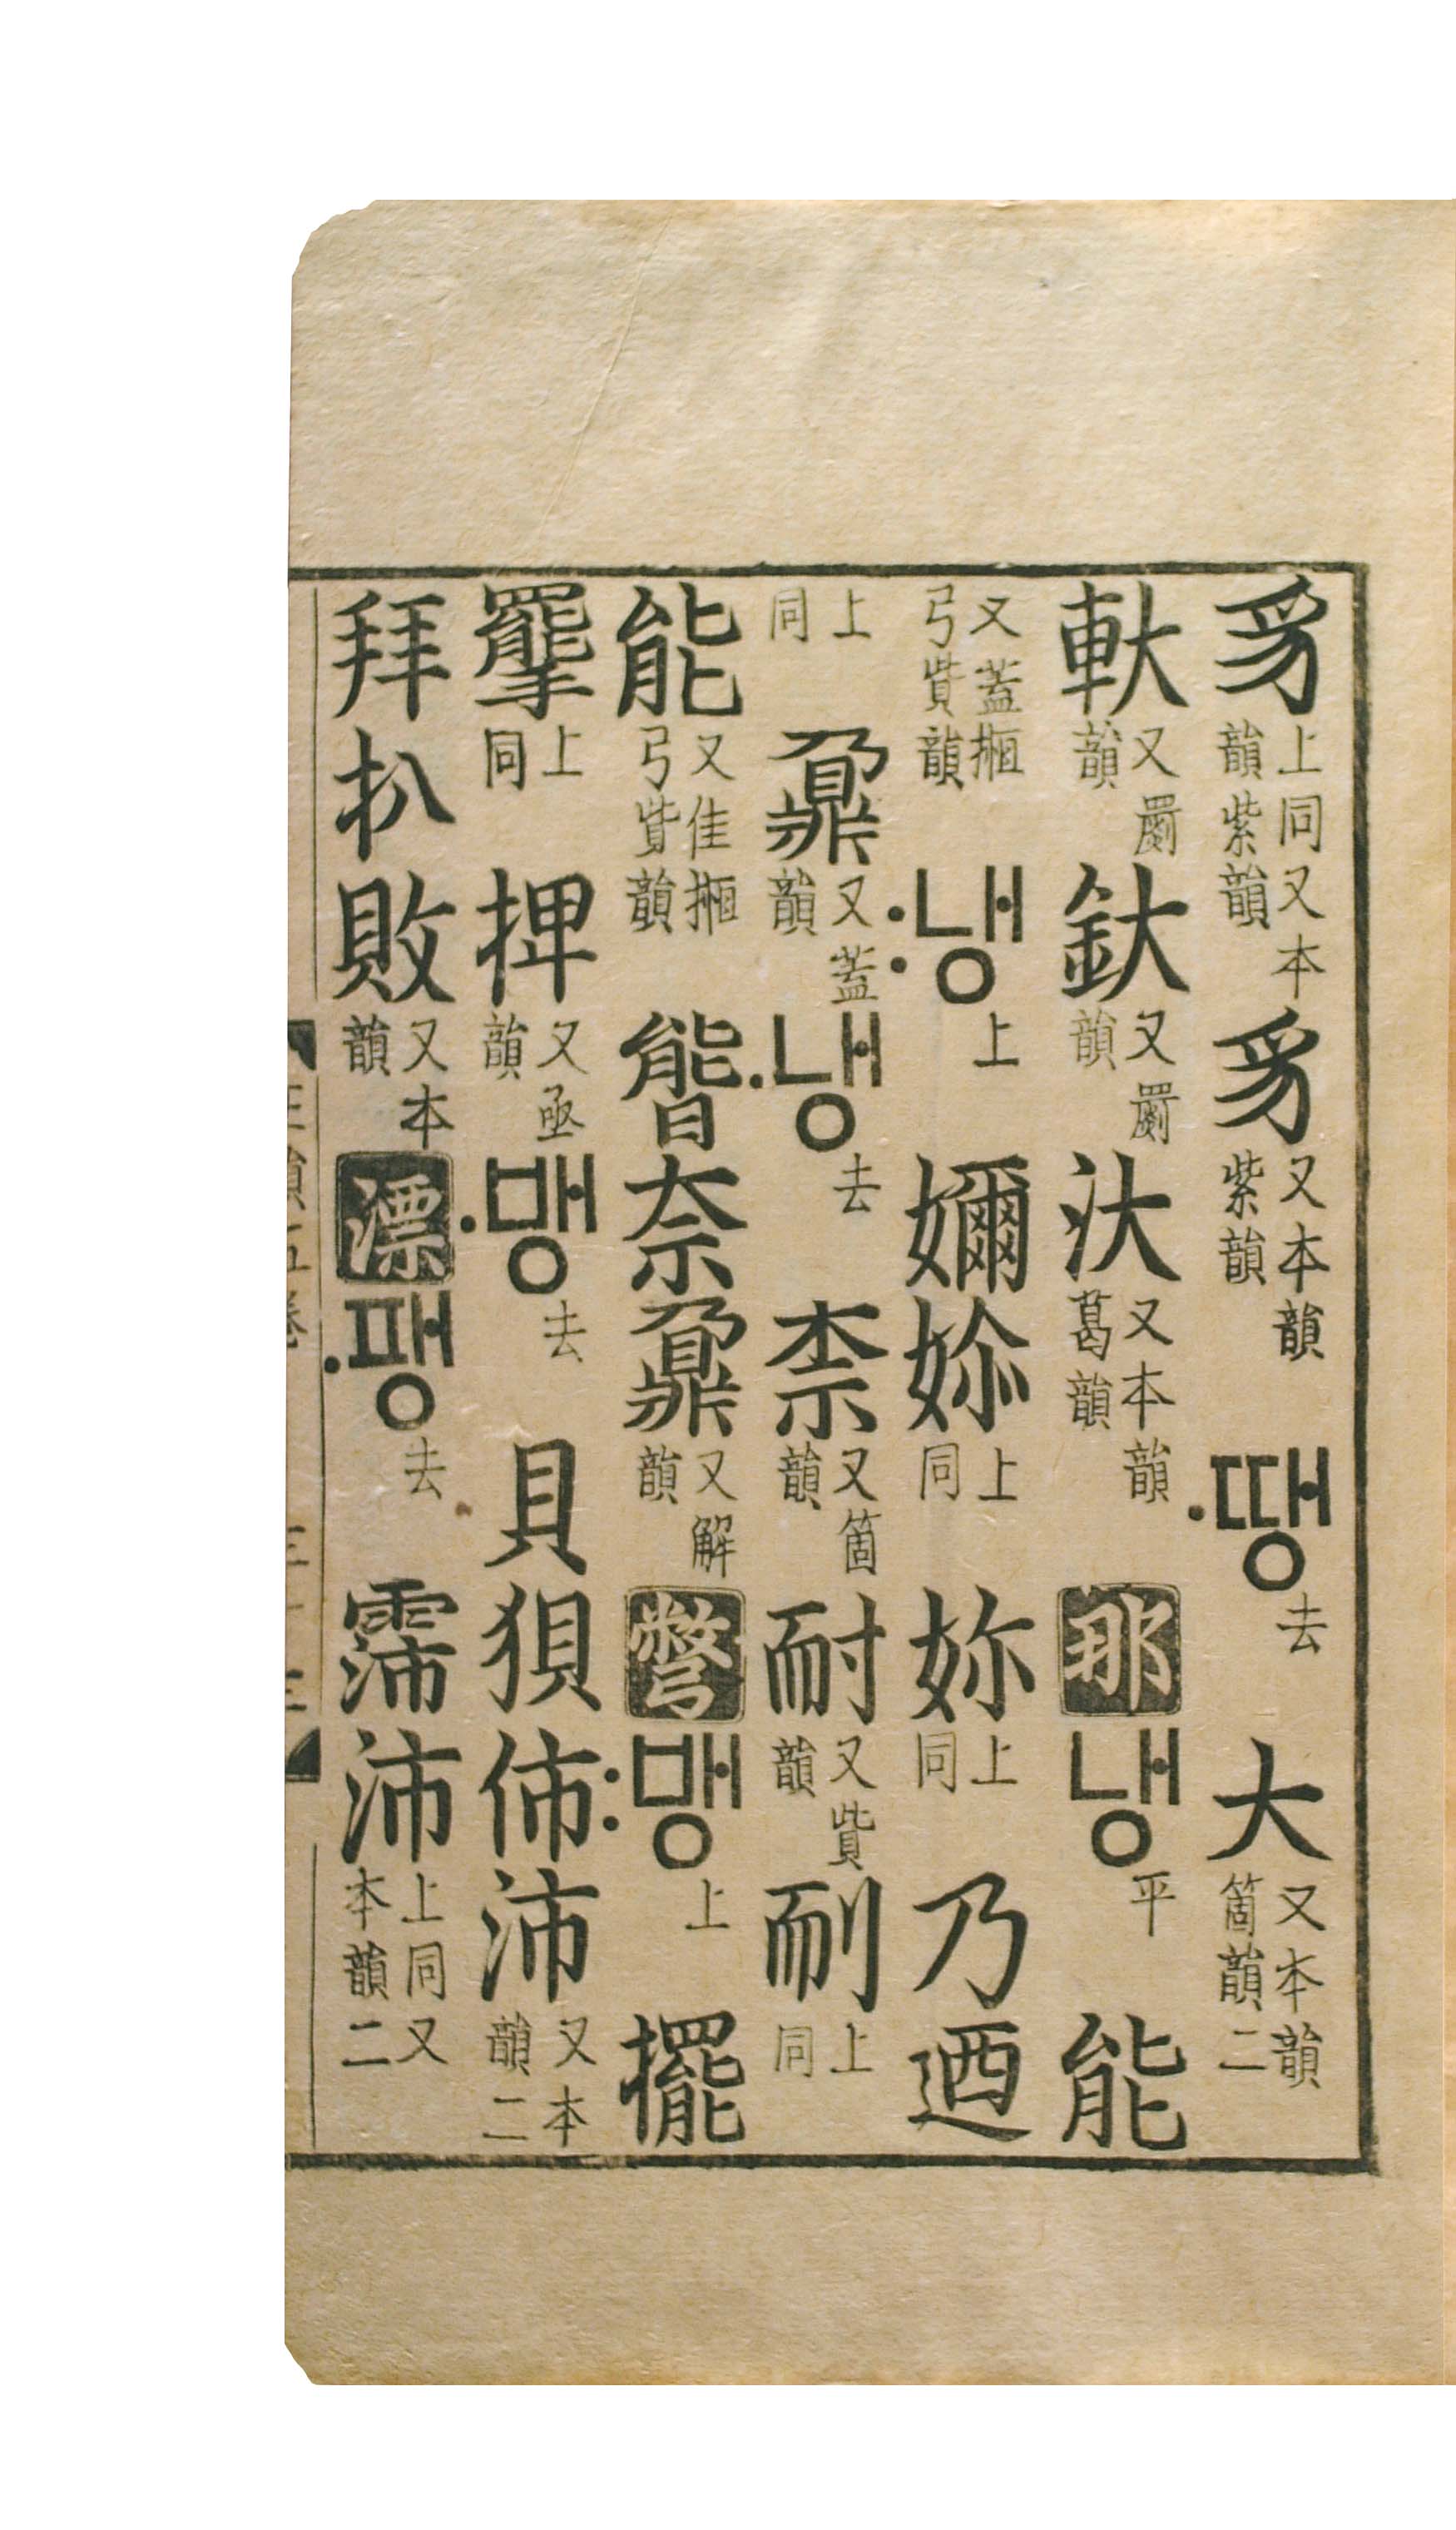 豸上同又本韻紫韻豸又本韻紫韻·땡去大又本韻箇韻二
軑又罽韻釱又罽韻汏又本韻葛韻那냉平能
又蓋揯弓貲韻:냉上嬭㚷上同妳上同乃迺
上同鼐又蓋韻·냉去柰又箇韻耐又貲韻上同
能又佳揯弓貲韻奈鼐又解韻彆:뱅上擺
上同捭又亟韻·뱅去貝狽伂沛又本韻二
拜扒敗又本韻漂·팽去霈沛上同又本韻二